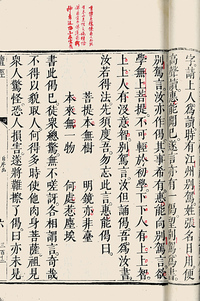 字請上人為讀時有江州別駕姓張名日用便
高聲讀惠能聞已遂言亦有一偈望別駕為書
別駕言汝亦作偈其事希有惠能向別駕言欲
學無上菩提不可輕於初學下下人有上上智
上上人有沒意智別駕言汝但誦偈吾為汝書
汝若得法先須度吾勿忘此言惠能偈曰
菩提本無樹 明鏡亦非臺
本來無一物 何處惹塵埃
書此偈已徒衆總驚無不嗟訝各相謂言奇哉
不得以貌取人何得多時使他肉身菩薩祖見
衆人驚怪恐人損害遂將鞋擦了偈曰亦未見
六